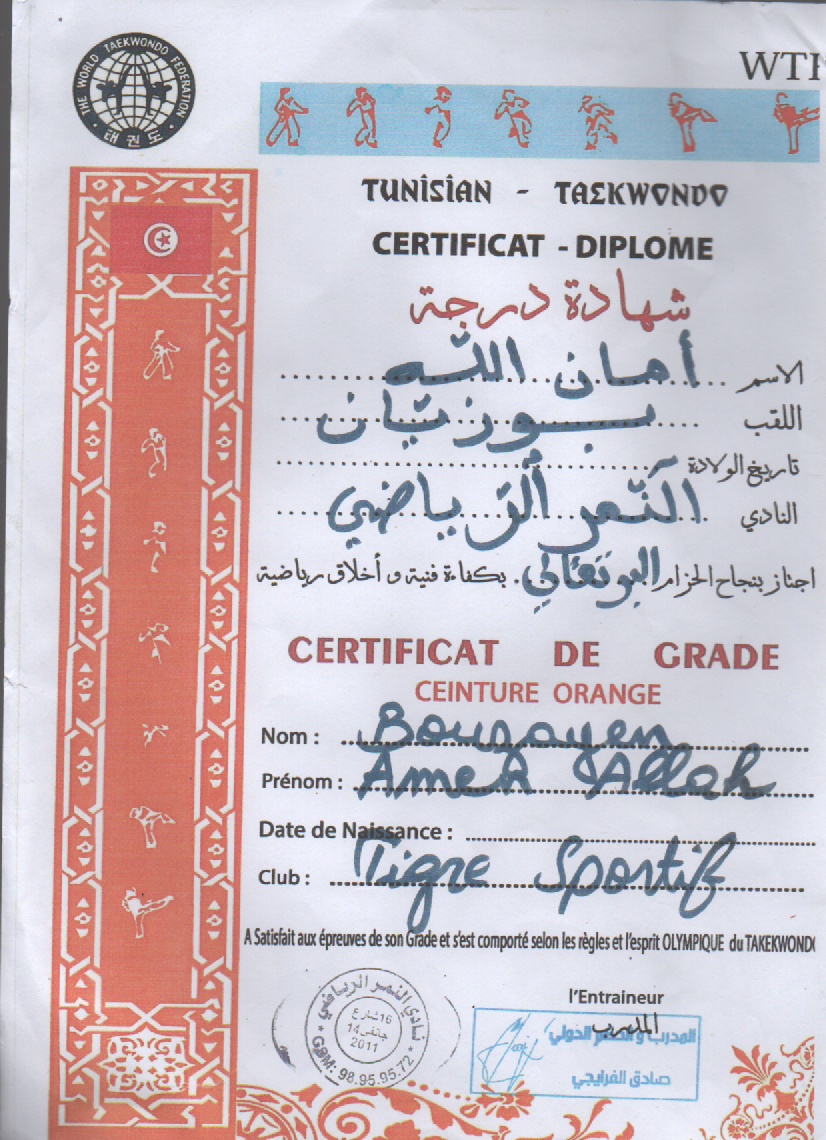 THE WORLD TAEKWONDO FEDERATION
태권도
WTF
TUNISIAN - TAEKWONDO
CERTIFICAT - DIPLOME
شهادة درجة
الاسم أمان الله
اللقب بوزيّان
تاريخ الولادة
النادي النّمر الرّياضي
اجتاز بنجاح الحزام البرتقالي بكفاءة فنية و أخلاق رياضية
CERTIFICAT DE GRADE
CEINTURE ORANGE
Nom : Bouzayen
Prénom : Amen Allah
Date de Naissance :
Club : Tigre Sportif
A Satisfait aux épreuves de son Grade et s'est comporté selon les règles et l'esprit OLYMPIQUE du TAKEKWONDO
نادي النمر الرياضي
16 شارع
14 جانفي
2011
GSM: 98.95.95.72
l'Entraineur
المدرب
المدرب و الحكم الدولي
صادق الفرايجي